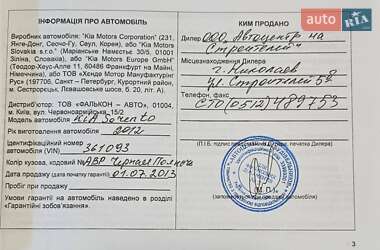 AUTO.RIA
ІНФОРМАЦІЯ ПРО АВТОМОБІЛЬ
Виробник автомобіля: "Kia Motors Corporation" (231,
Янге-Донг, Сеочо-Гу, Сеул, Корея), або "Kia Motors
Slovakia s.r.o." (Маріянське Намєстіє 30/5, 01001
Зіліна, Словакія), або "Kia Motors Europe GmbH"
(Теодор-Хеусс-Алеє, 60486 Франкфурт на Майні,
Німеччина), або ТОВ «Хенде Мотор Мануфакторінг
Рус» (197701, Санкт-Петербург, Курортний район,
м. Сестрорецьк, Левашовське шосе, б. 20, літ. А)
Дистриб'ютор: ТОВ «ФАЛЬКОН – АВТО», 01004,
м. Київ, вул. Червоноармійська, 15/2
Модель автомобіля KIA Sorento
Рік виготовлення автомобіля 2012
Ідентифікаційний номер
автомобіля (VIN) 361093
Колір кузова, кодовий № ABP Черная
Дата продажу 01.07.2013
Пробіг при продажу
Умови гарантії на автомобіль наведено в розділі
«Гарантійні зобов'язання».
КИМ ПРОДАНО
Дилер ООО "Автоцентр на
Строителей"
Місцезнаходження Дилера
г. Николаев
ул. Строителей 5В
Телефон, факс
СТО (0512) 489753
М.П.
3